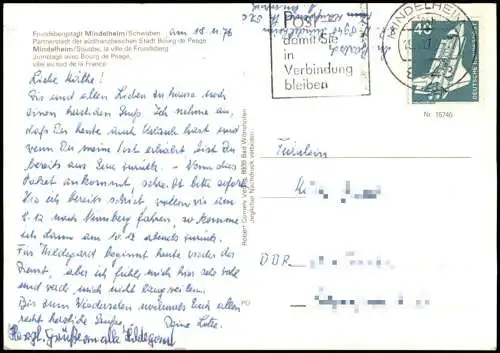 Frundsbergstadt Mindelheim/Schwaben
Partnerstadt der südfranzösischen Stadt Bourg de Peage
Mindelheim/Souabe, la ville de Frundsberg
Jumelage avec Bourg de Peage,
ville au sud de la France
am 18.11.76
Liebe Käthe!
Dir und allen Lieben zu Hause noch
einen herzlichen Gruß. Ich nehme an,
daß Du heute auch Urlaub hast und
wenn Du meine Post erhältst, bist Du
bereits aus zurück. – Wenn das
Paket ankommt, schreibt bitte sofort
Wie ich bereits schrieb, wollen wir am
8.12 nach Nürnberg fahren, so komme
ich dann am 10.12 abends zurück.
Für Hildegard beginnt heute wieder der
Dienst, aber ich fühl mich hier sehr wohl
und werde mich nicht langweilen.
Bis zum Wiedersehen nochmals Euch allen
recht herzliche Grüße, Deine Lotte.
Herzl. Grüße an alle Hildegard
Robert Gomery Verlag, 8939 Bad Wörishofen
Jeglicher Nachdruck verboten
PD
Post
damit Sie
in
Verbindung
bleiben
MINDELHEIM
40
DEUTSCHE BUNDESPOST
Nr. 16746
Fräulein
DDR